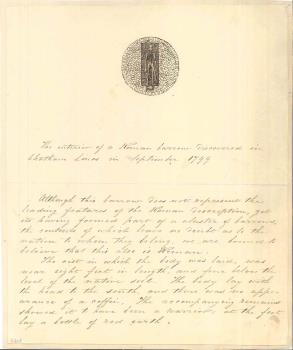 The interior of a Roman barrow discovered in
Chatham Lines in September 1779
Although this barrow does not represent the
leading features of the Roman description, yet
its having formed part of a cluster of barrows,
the contents of which leave no doubt as to the
nation to whom they belong, we are bound to
believe that this also is Roman.
The cist in which the body was laid, was
near eight feet in length, and four below the
level of the native soil. The body lay with
the head to the south and there was no appe-
arance of a coffin. The accompanying remains
showed it to have been a warrior, at the feet
lay a bottle of red earth.